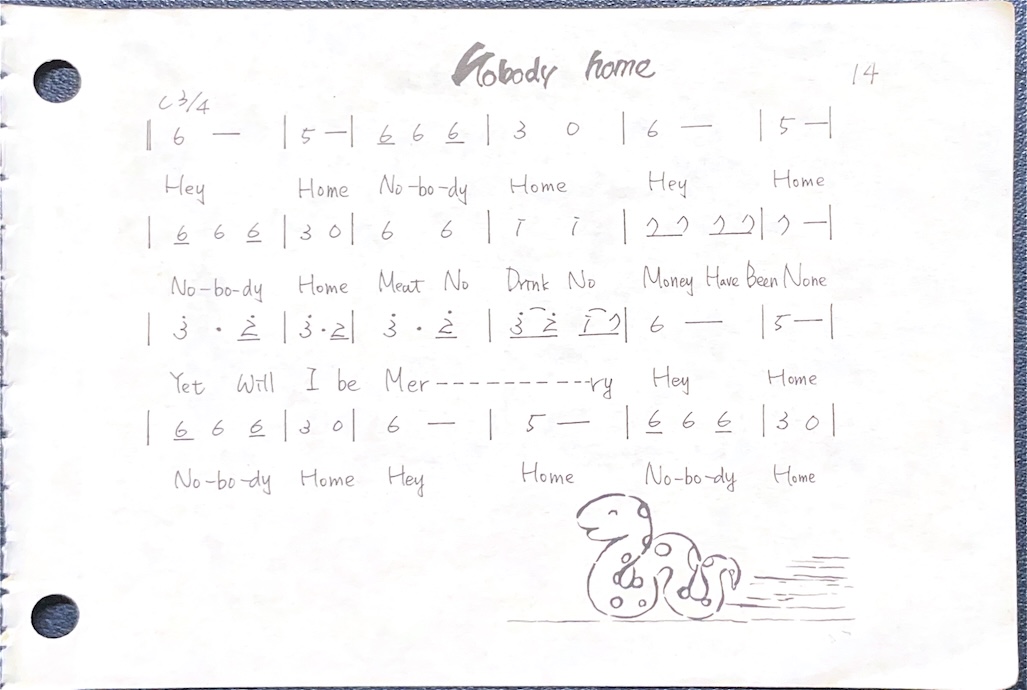 Nobody home
14
C 3/4
‖ 6 — | 5 — | 6̲ 6 6̲ | 3 0 | 6 — | 5 — |
Hey Home No-bo-dy Home Hey Home
| 6̲ 6 6̲ | 3 0 | 6 6 | i i | 7̲ 7̲ 7̲ 7̲ | 7 — |
No-bo-dy Home Meat No Drink No Money Have Been None
| 3̇ · 2̲̇ | 3̇ · 2̲ | 3̇ · 2̲̇ | 3̲̇ 2̲̇ i̲ 7̲ | 6 — | 5 — |
Yet Will I be Mer----------ry Hey Home
| 6̲ 6 6̲ | 3 0 | 6 — | 5 — | 6̲ 6 6̲ | 3 0 |
No-bo-dy Home Hey Home No-bo-dy Home